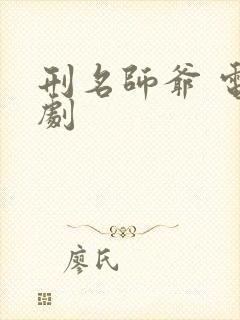 刑名師爺 電
劇
廖氏